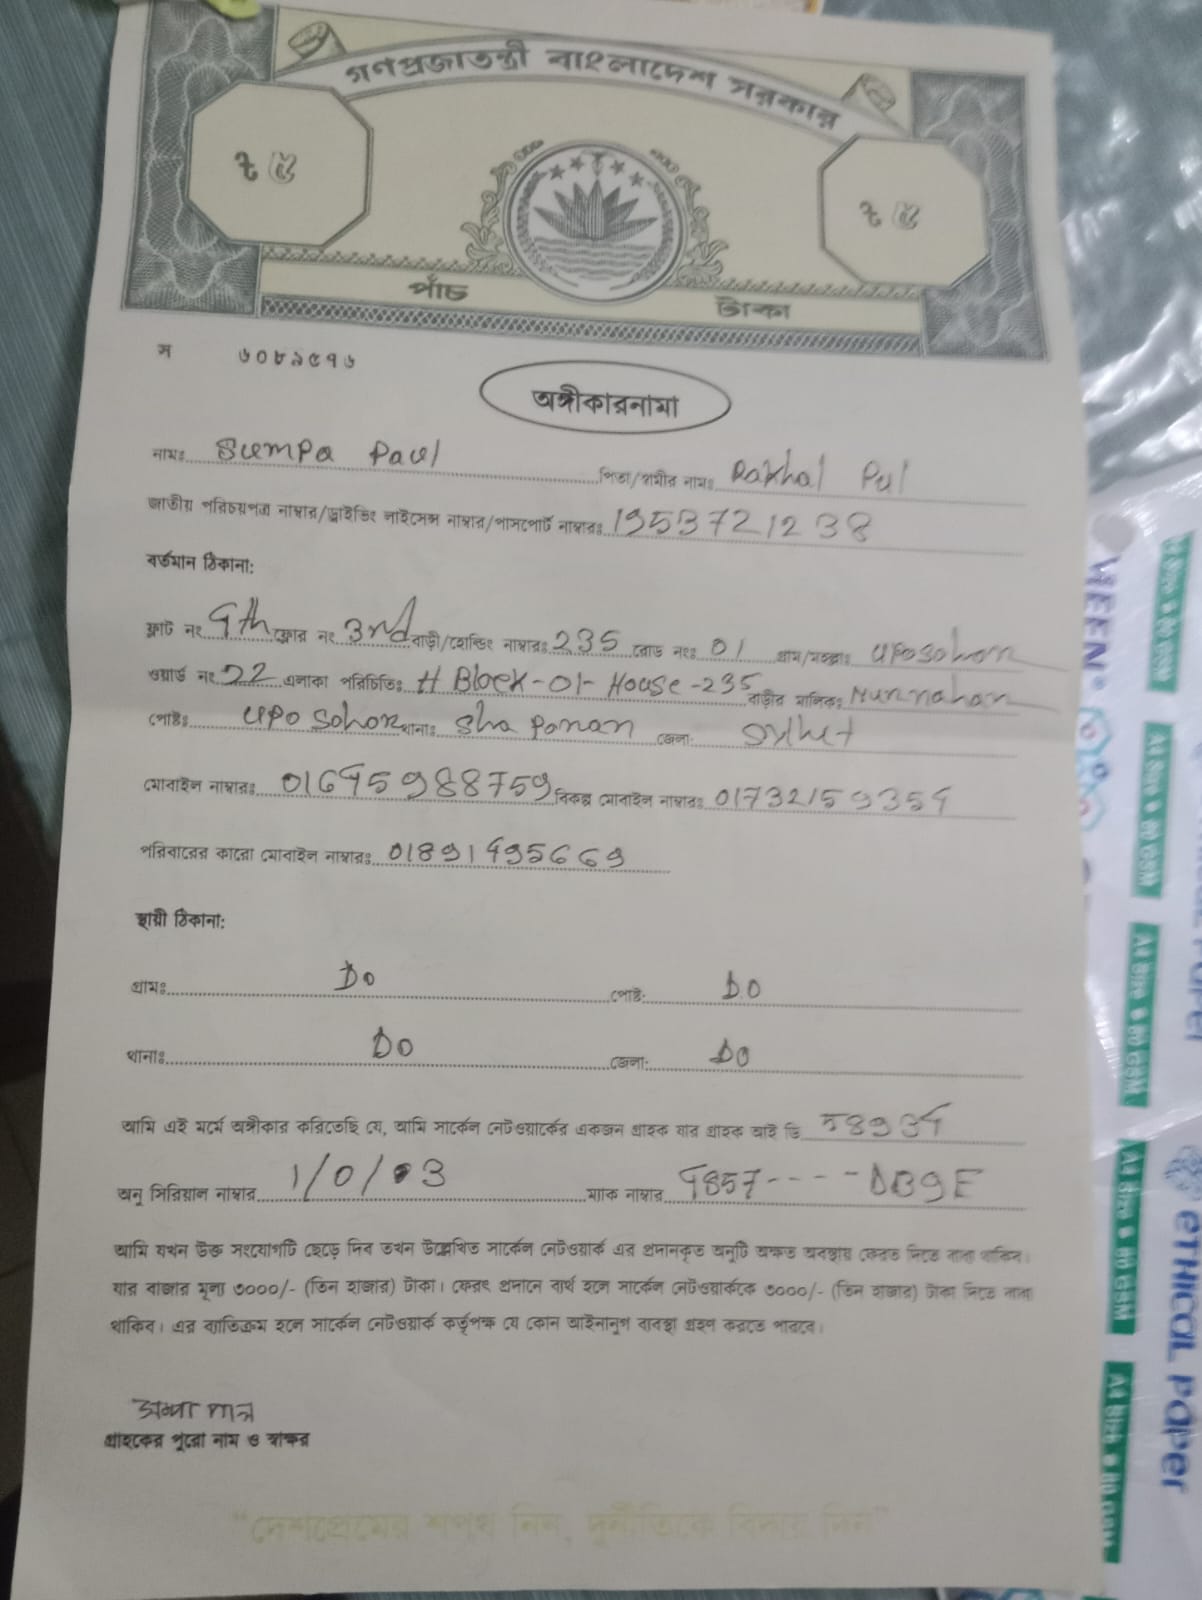 গণপ্রজাতন্ত্রী বাংলাদেশ সরকার
৳ ৫ ৳ ৫
পাঁচ টাকা
স ৬০৮৯৫৭৬
অঙ্গীকারনামা
নামঃ Sumpa Paul পিতা/স্বামীর নামঃ Rakhal Pul
জাতীয় পরিচয়পত্র নাম্বার/ড্রাইভিং লাইসেন্স নাম্বার/পাসপোর্ট নাম্বারঃ 1953721238
বর্তমান ঠিকানা:
ফ্লাট নং 4th ফ্লোর নং 3rd বাড়ী/হোল্ডিং নাম্বারঃ 235 রোড নংঃ 01 গ্রাম/মহল্লাঃ uposohon
ওয়ার্ড নং 22 এলাকা পরিচিতিঃ H Block-01- House-235 বাড়ীর মালিকঃ Nurnahan
পোষ্টঃ upo sohon থানাঃ Sha Ponan জেলা: Sylhet
মোবাইল নাম্বারঃ 01645988759 বিকল্প মোবাইল নাম্বারঃ 01732159354
পরিবারের কারো মোবাইল নাম্বারঃ 01891495669
স্থায়ী ঠিকানা:
গ্রামঃ Do পোষ্ট: D.O
থানাঃ DO জেলা: DO
আমি এই মর্মে অঙ্গীকার করিতেছি যে, আমি সার্কেল নেটওয়ার্কের একজন গ্রাহক যার গ্রাহক আই ডি
অনু সিরিয়াল নাম্বার 1/0/3 ম্যাক নাম্বার 4857----DB9E
আমি যখন উক্ত সংযোগটি ছেড়ে দিব তখন উল্লেখিত সার্কেল নেটওয়ার্ক এর প্রদানকৃত অনুটি অক্ষত অবস্থায় ফেরত দিতে বাধ্য থাকিব।
যার বাজার মূল্য ৩০০০/- (তিন হাজার) টাকা। ফেরৎ প্রদানে ব্যর্থ হলে সার্কেল নেটওয়ার্ককে ৩০০০/- (তিন হাজার) টাকা দিতে বাধ্য
থাকিব। এর ব্যতিক্রম হলে সার্কেল নেটওয়ার্ক কর্তৃপক্ষ যে কোন আইনানুগ ব্যবস্থা গ্রহণ করতে পারবে।
গ্রাহকের পুরো নাম ও স্বাক্ষর
"দেশপ্রেমের শপথ নিন, দুর্নীতিকে বিদায় দিন"
A4 Size 80 GSM
A4 Size 80 GSM
A4 Size 80 GSM
A4 Size 80 GSM
A4 Size 80 GSM
ETHICAL PAPER